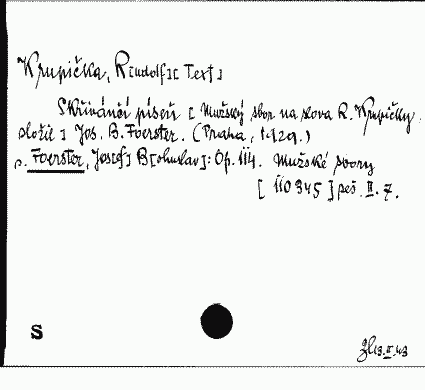 Krupička, R[udolf] [Text]
Skřivánčí píseň [Mužský sbor na slova R. Krupičky.
složil] Jos. B. Foerster. (Praha, 1929.)
v. Foerster, Josef] B[ohuslav]: Op. 114. Mužské sbory
[II0345] peš. II. 7.
S